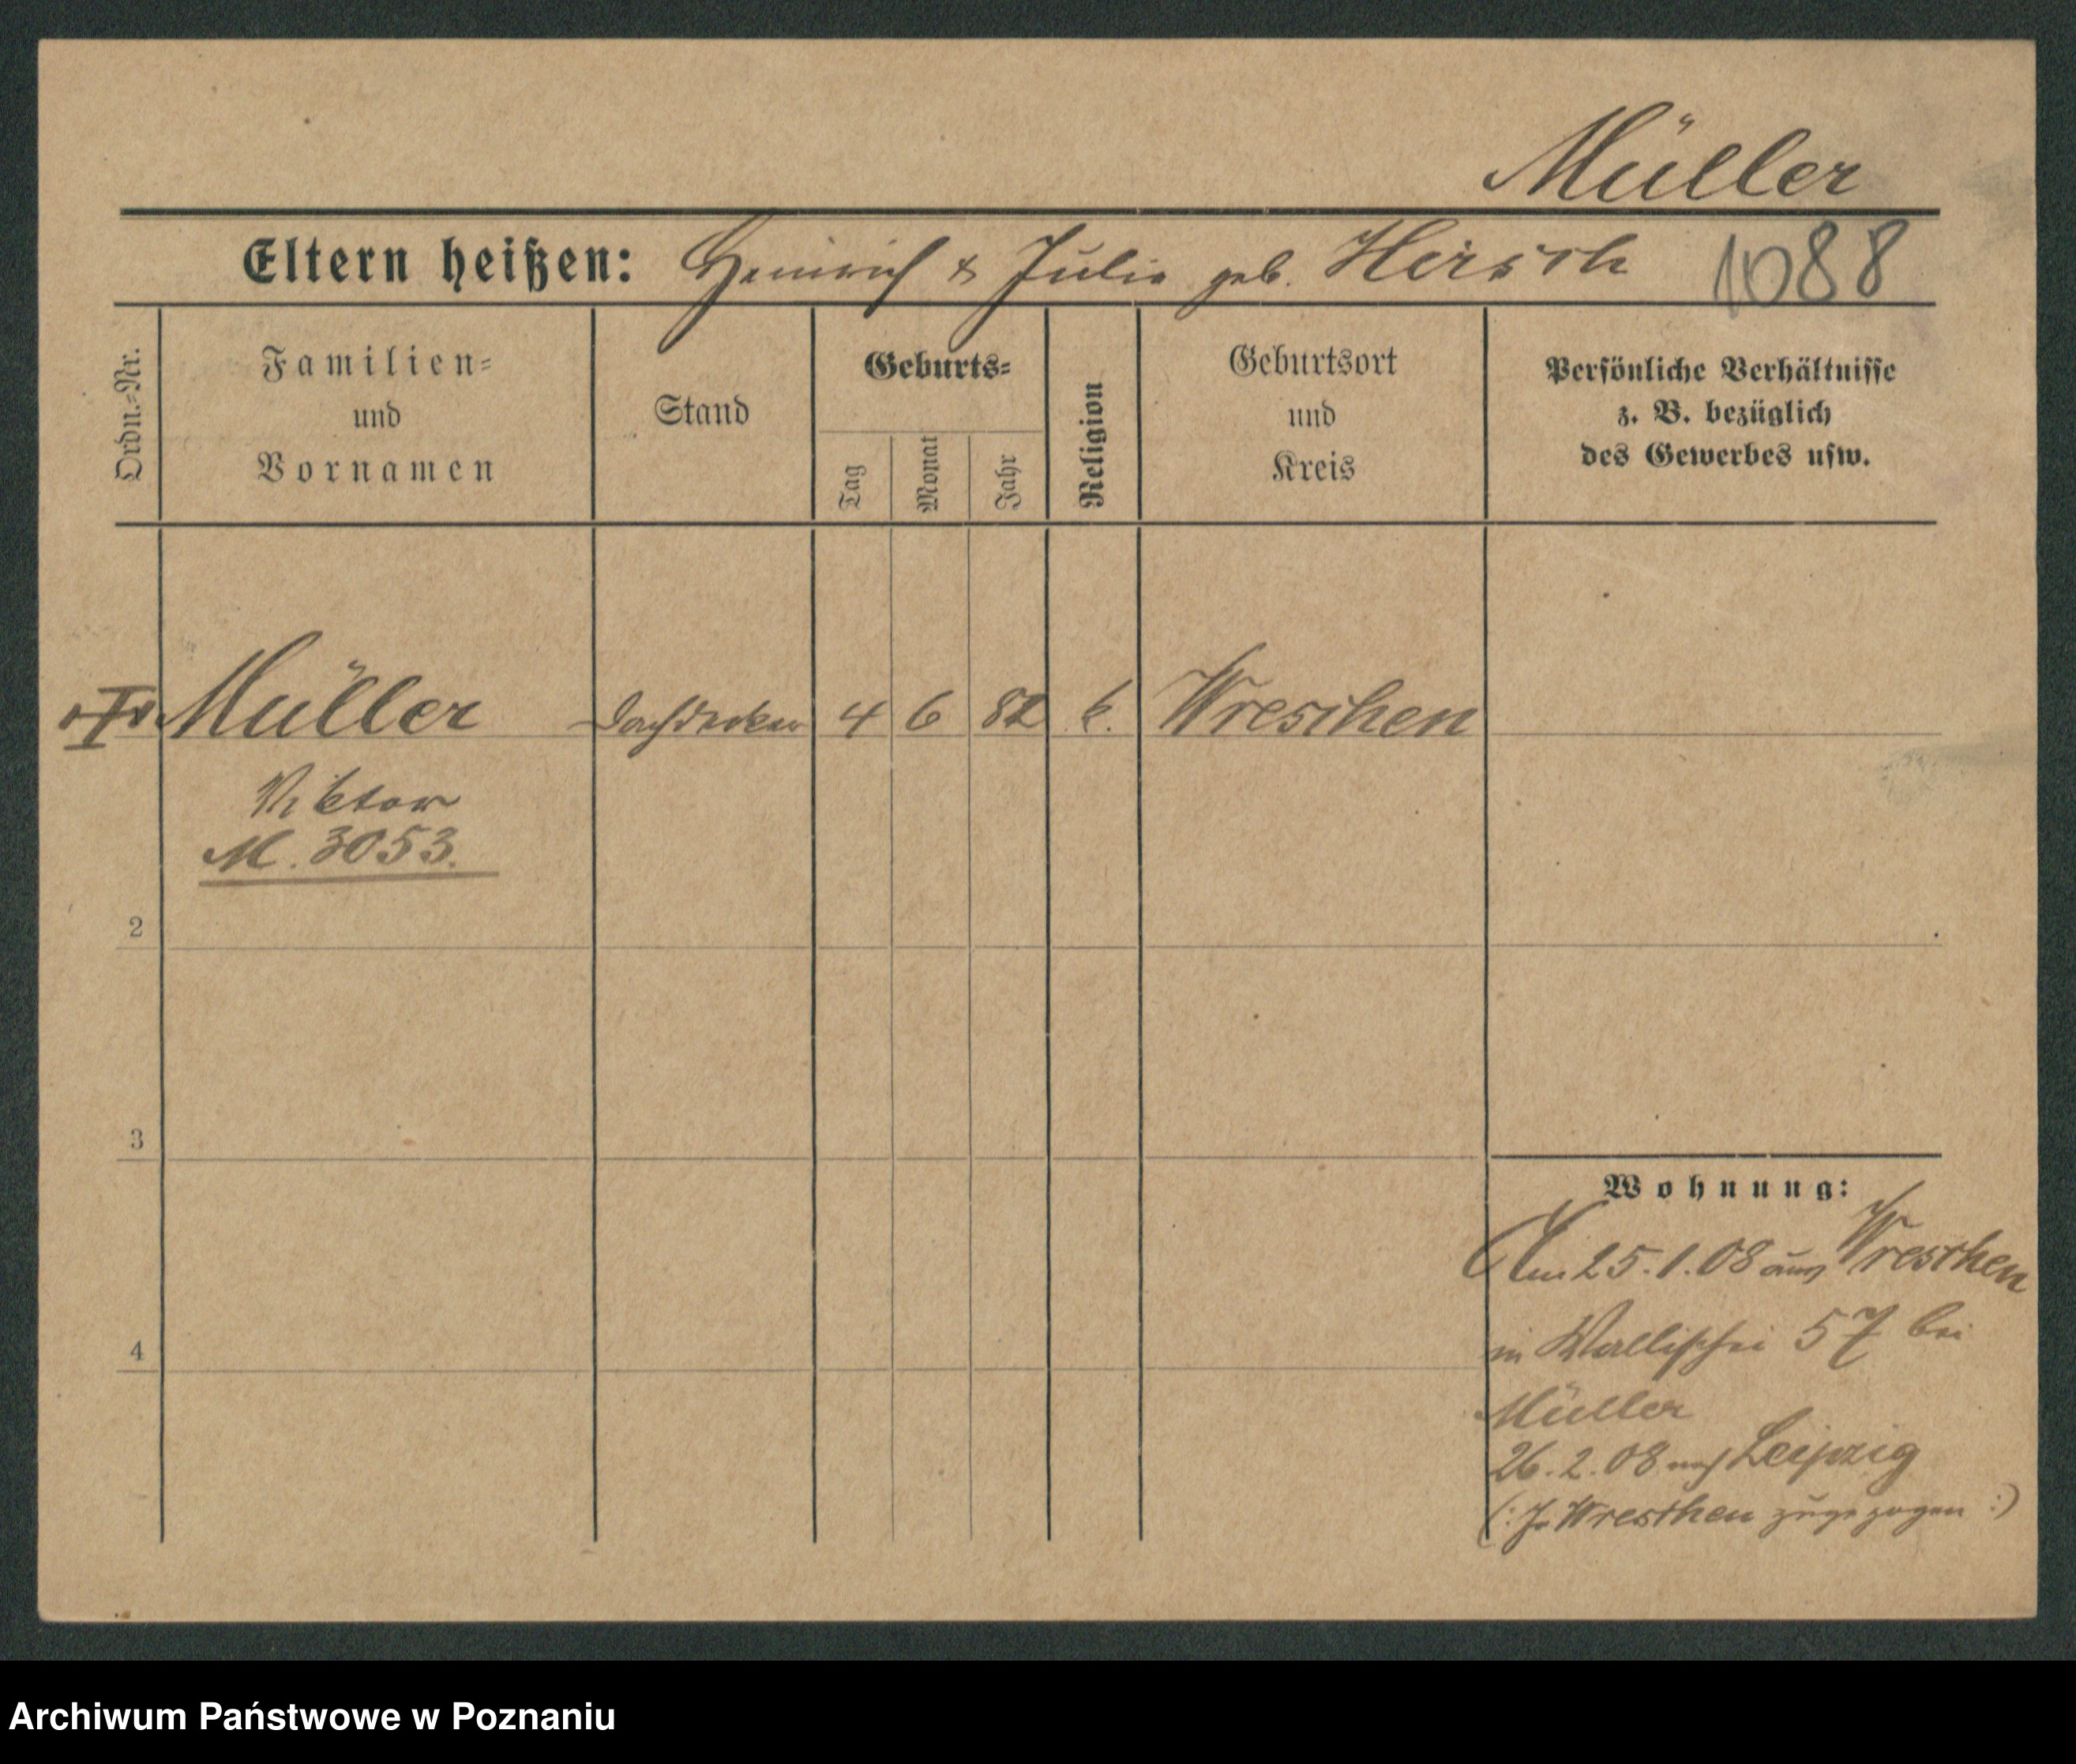 Müller
Eltern heißen: Heinrich & Julie geb. Hirsch 1088
Ordn.-Nr.
Familien-
und
Vornamen
Stand
Geburts-
Tag
Monat
Jahr
Religion
Geburtsort
und
Kreis
Persönliche Verhältnisse
z. B. bezüglich
des Gewerbes usw.
Müller Dachdecker 4 6 82 k. Wreschen
Viktor
M. 3053.
2
3
4
Wohnung:
Am 25.1.08 aus Wreschen
in Wallischei 57 bei
Müller
26.2.08 nach Leipzig
(: In Wreschen zugezogen :)
Archiwum Państwowe w Poznaniu